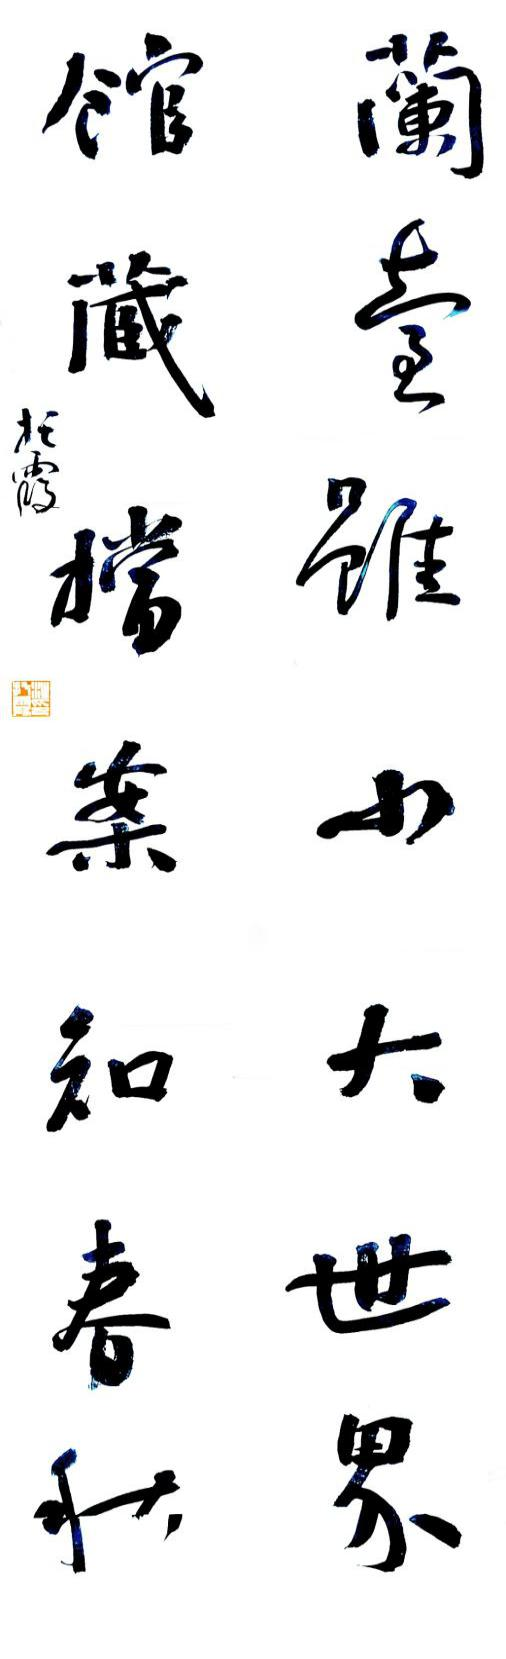 蘭臺雖小大世界
館藏檔案知春秋